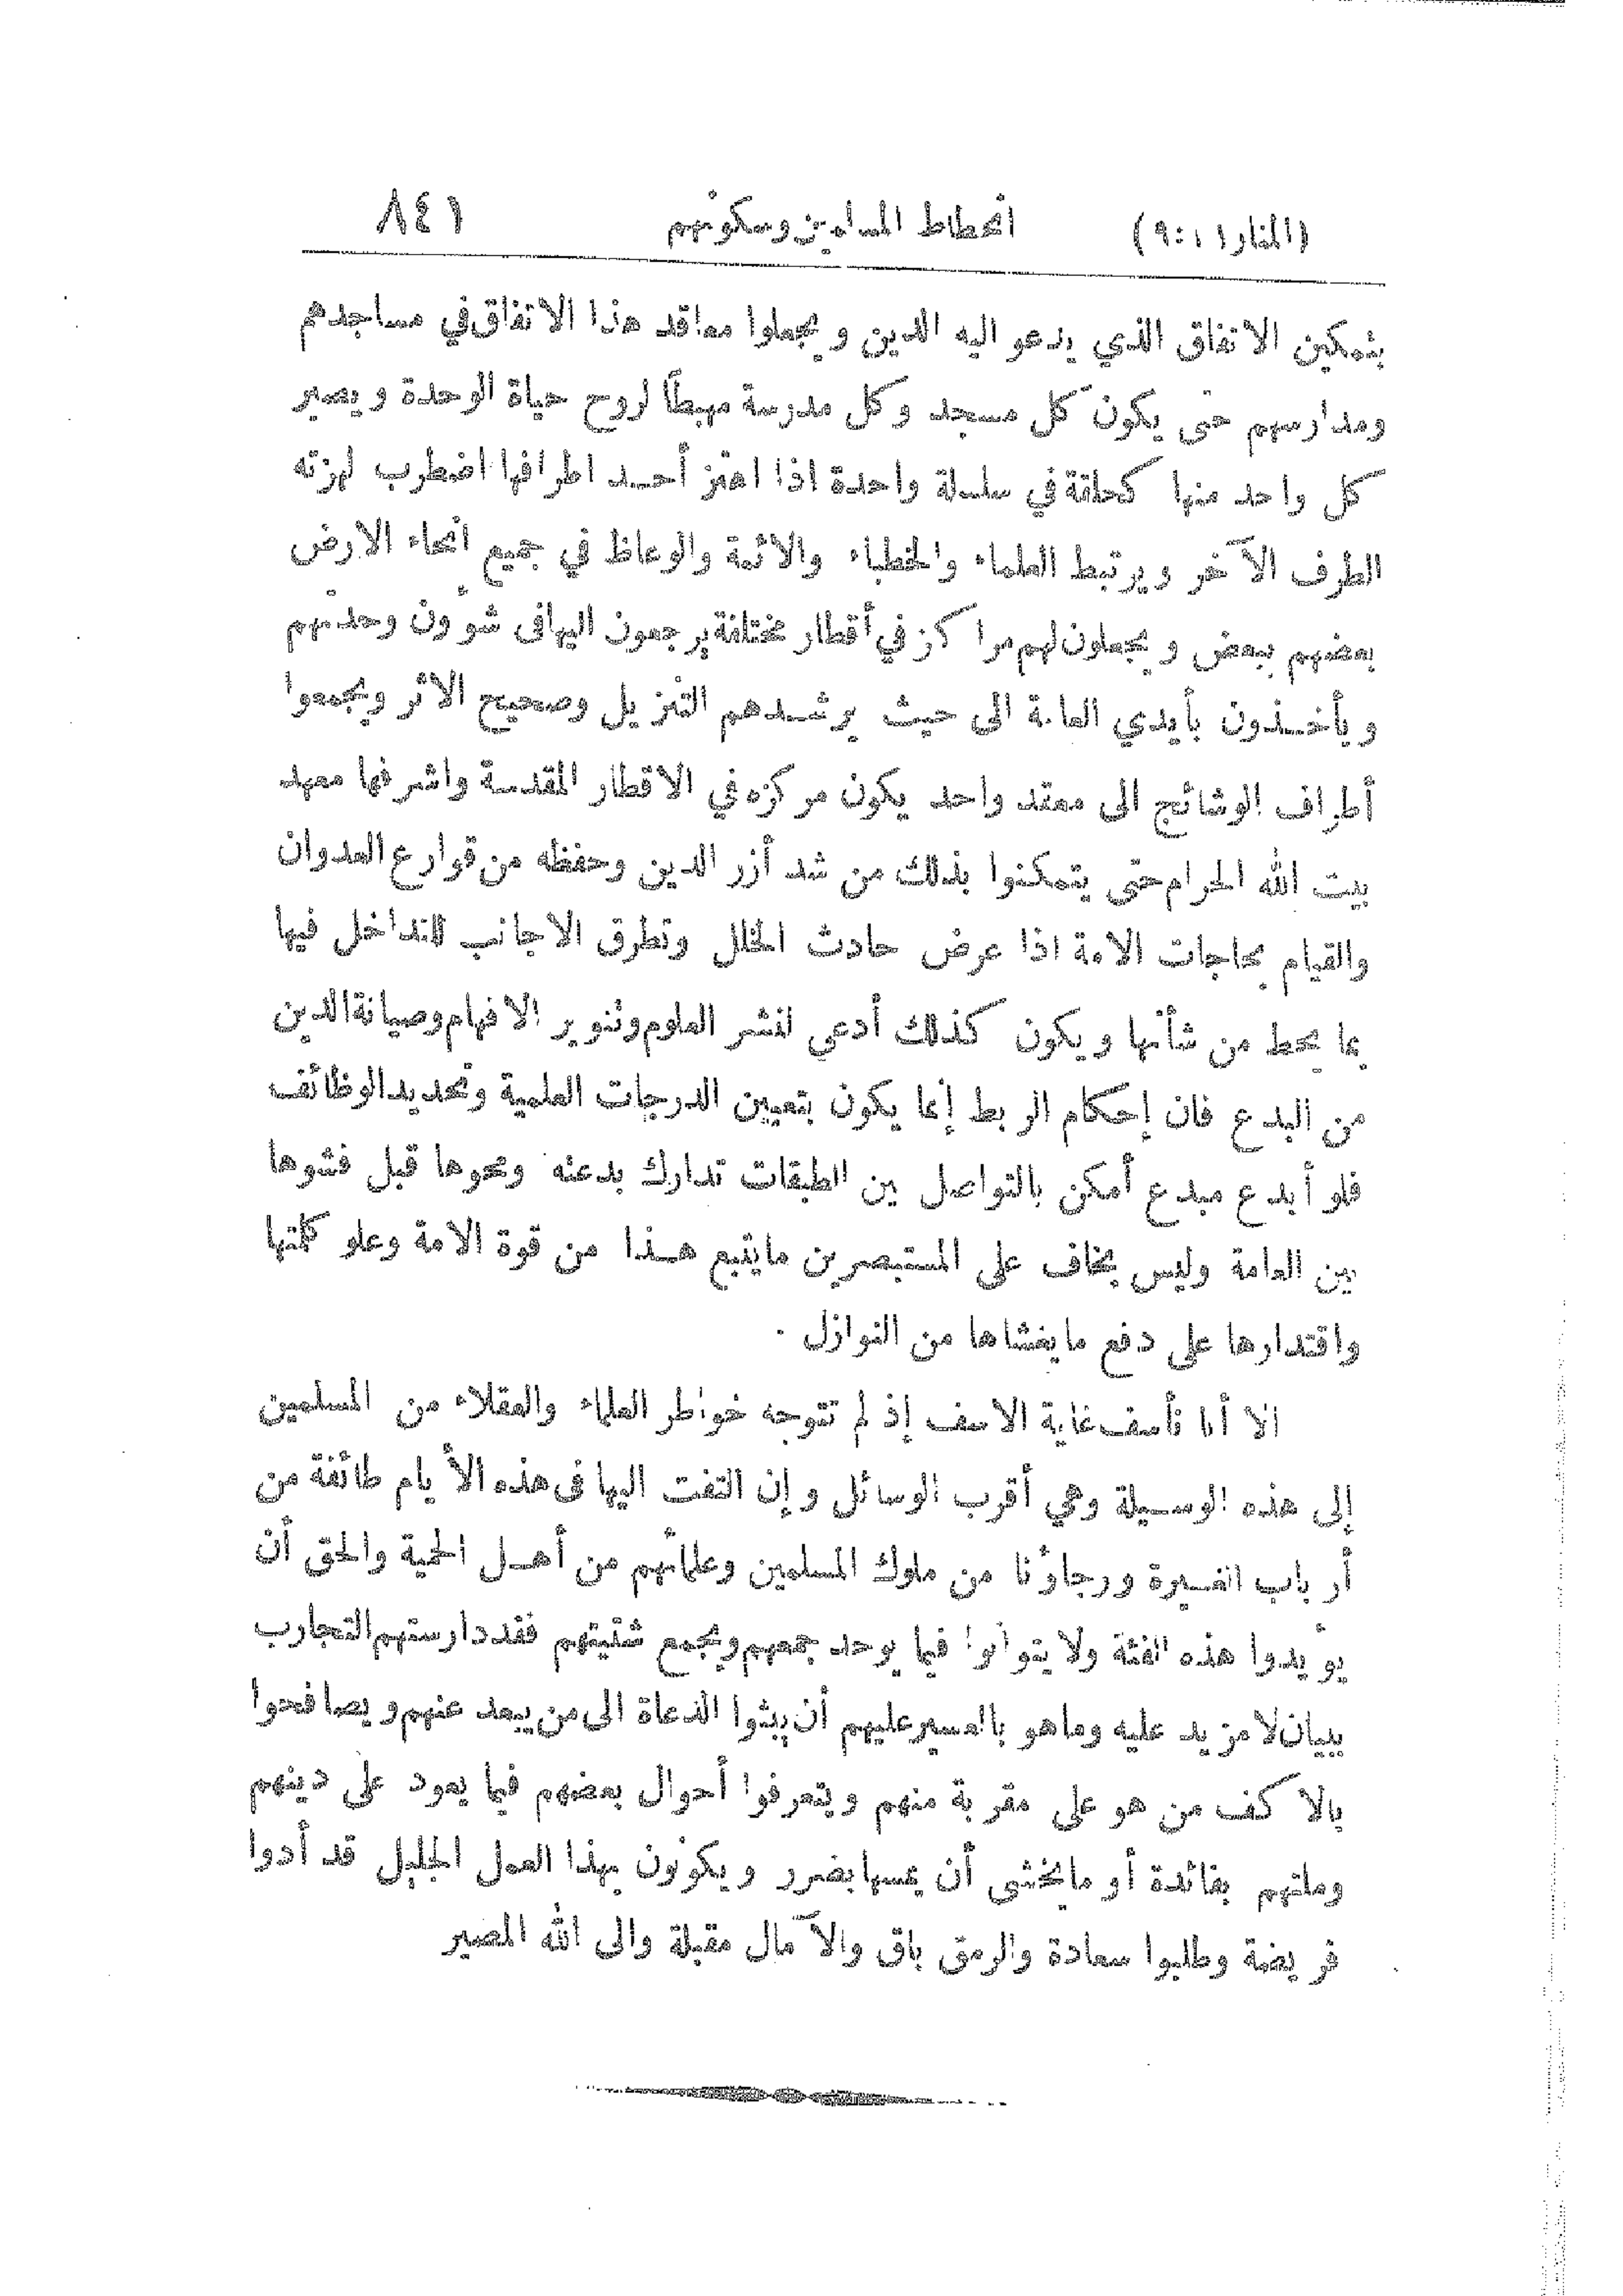 (المنار ١١:٩) انحطاط المسلمين وسكونهم ٨٤١
بتمكين الاتفاق الذي يدعو اليه الدين ويجعلوا معاقد هذا الاتفاق في مساجدهم
ومدارسهم حتى يكون كل مسجد وكل مدرسة مهبطًا لروح حياة الوحدة ويصير
كل واحد منها كحلقة في سلسلة واحدة اذا اهتز أحد اطرافها اضطرب لهزته
الطرف الآخر ويرتبط العلماء والخطباء والائمة والوعاظ في جميع انحاء الارض
بعضهم ببعض ويجعلون لهم مراكز في أقطار مختلفة يرجعون اليها فى شؤون وحدتهم
ويأخذون بأيدي العامة الى حيث يرشدهم التنزيل وصحيح الاثر ويجمعوا
أطراف الوشائج الى معقد واحد يكون مركزه في الاقطار المقدسة واشرفها معهد
بيت الله الحرام حتى يتمكنوا بذلك من شد أزر الدين وحفظه من قوارع العدوان
والقيام بحاجات الامة اذا عرض حادث الخلل وتطرق الاجانب للتداخل فيها
بما يحط من شأنها ويكون كذلك أدعى لنشر العلوم وتنوير الافهام وصيانة الدين
من البدع فان إحكام الربط إنما يكون بتعيين الدرجات العلمية وتحديد الوظائف
فلو أبدع مبدع أمكن بالتواصل بين الطبقات تدارك بدعته ومحوها قبل فشوها
بين العامة وليس بخاف على المستبصرين مايتبع هذا من قوة الامة وعلو كلمتها
واقتدارها على دفع مايغشاها من النوازل .
الا أنا نأسف غاية الاسف إذ لم تتوجه خواطر العلماء والعقلاء من المسلمين
إلى هذه الوسيلة وهي أقرب الوسائل وإن التفت اليها فى هذه الأيام طائفة من
أرباب الغيرة ورجاؤنا من ملوك المسلمين وعلمائهم من أهل الحمية والحق أن
يؤيدوا هذه الفئة ولا يتوانوا فيما يوحد جمعهم ويجمع شتيتهم فقد دارستهم التجارب
ببيان لا مزيد عليه وما هو بالعسير عليهم أن يبثوا الدعاة الى من يبعد عنهم ويصافحوا
بالاكف من هو على مقربة منهم ويتعرفوا أحوال بعضهم فيما يعود على دينهم
وملتهم بفائدة أو مايخشى أن يمسها بضرر ويكونون بهذا العمل الجليل قد أدوا
فريضة وطلبوا سعادة والرمق باق والآمال مقبلة والى الله المصير